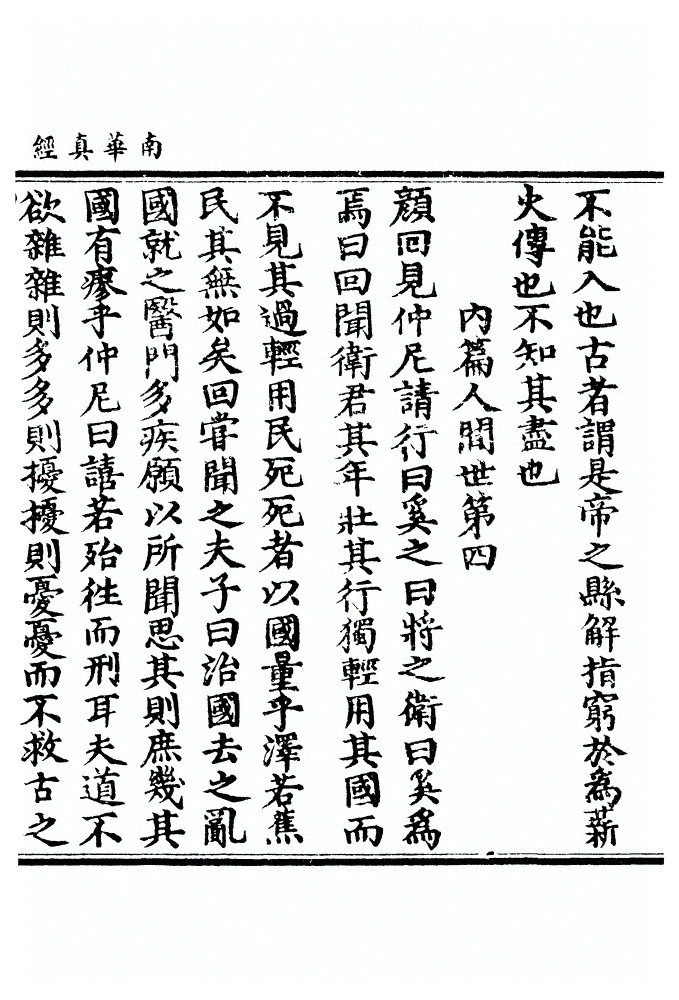 南華真經
不能入也古者謂是帝之縣解指窮於為薪
火傳也不知其盡也
內篇人間世第四
顏回見仲尼請行曰奚之曰將之衛曰奚為
焉曰回聞衛君其年壯其行獨輕用其國而
不見其過輕用民死死者以國量乎澤若蕉
民其無如矣回嘗聞之夫子曰治國去之亂
國就之醫門多疾願以所聞思其則庶幾其
國有瘳乎仲尼曰譆若殆徃而刑耳夫道不
欲雜雜則多多則擾擾則憂憂而不救古之